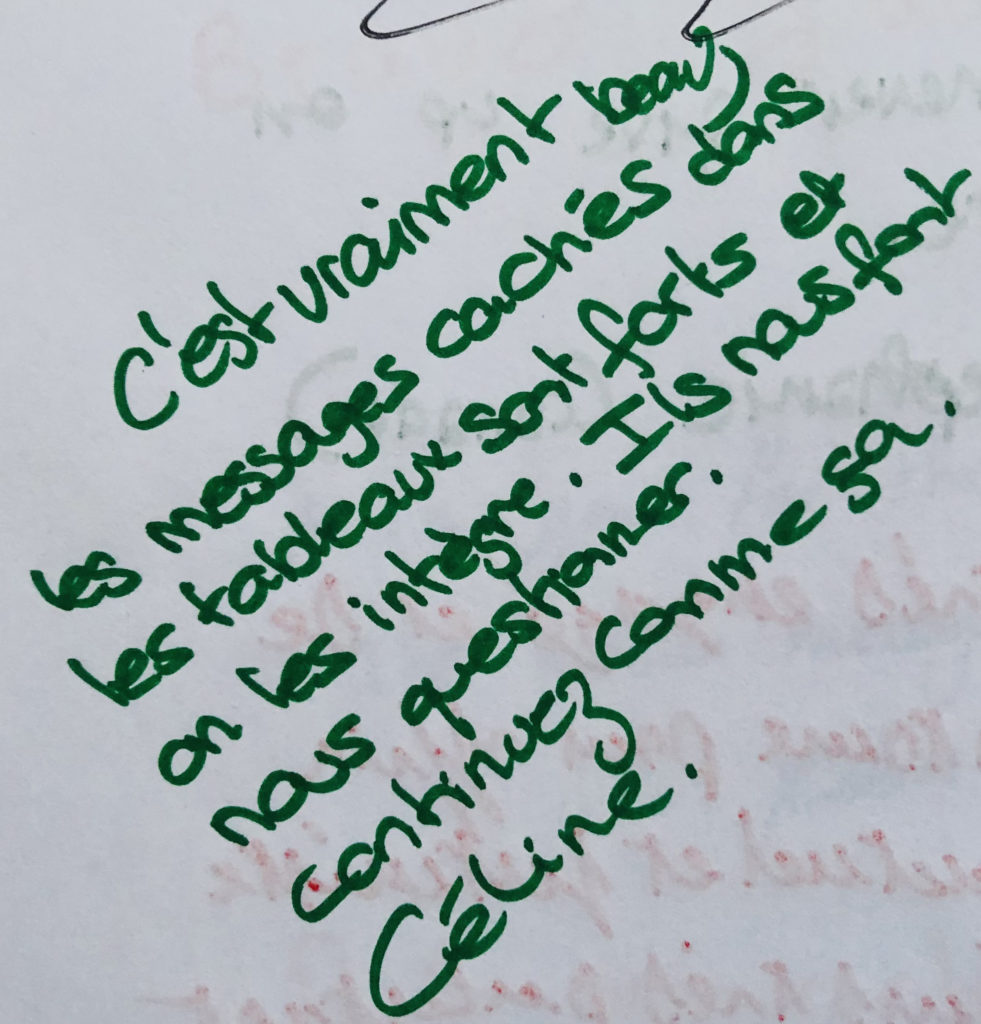 C'est vraiment beau,
les messages cachés dans
les tableaux sont forts et
on les intègre. Ils nous font
nous questionner.
continuez comme sa.
Céline.